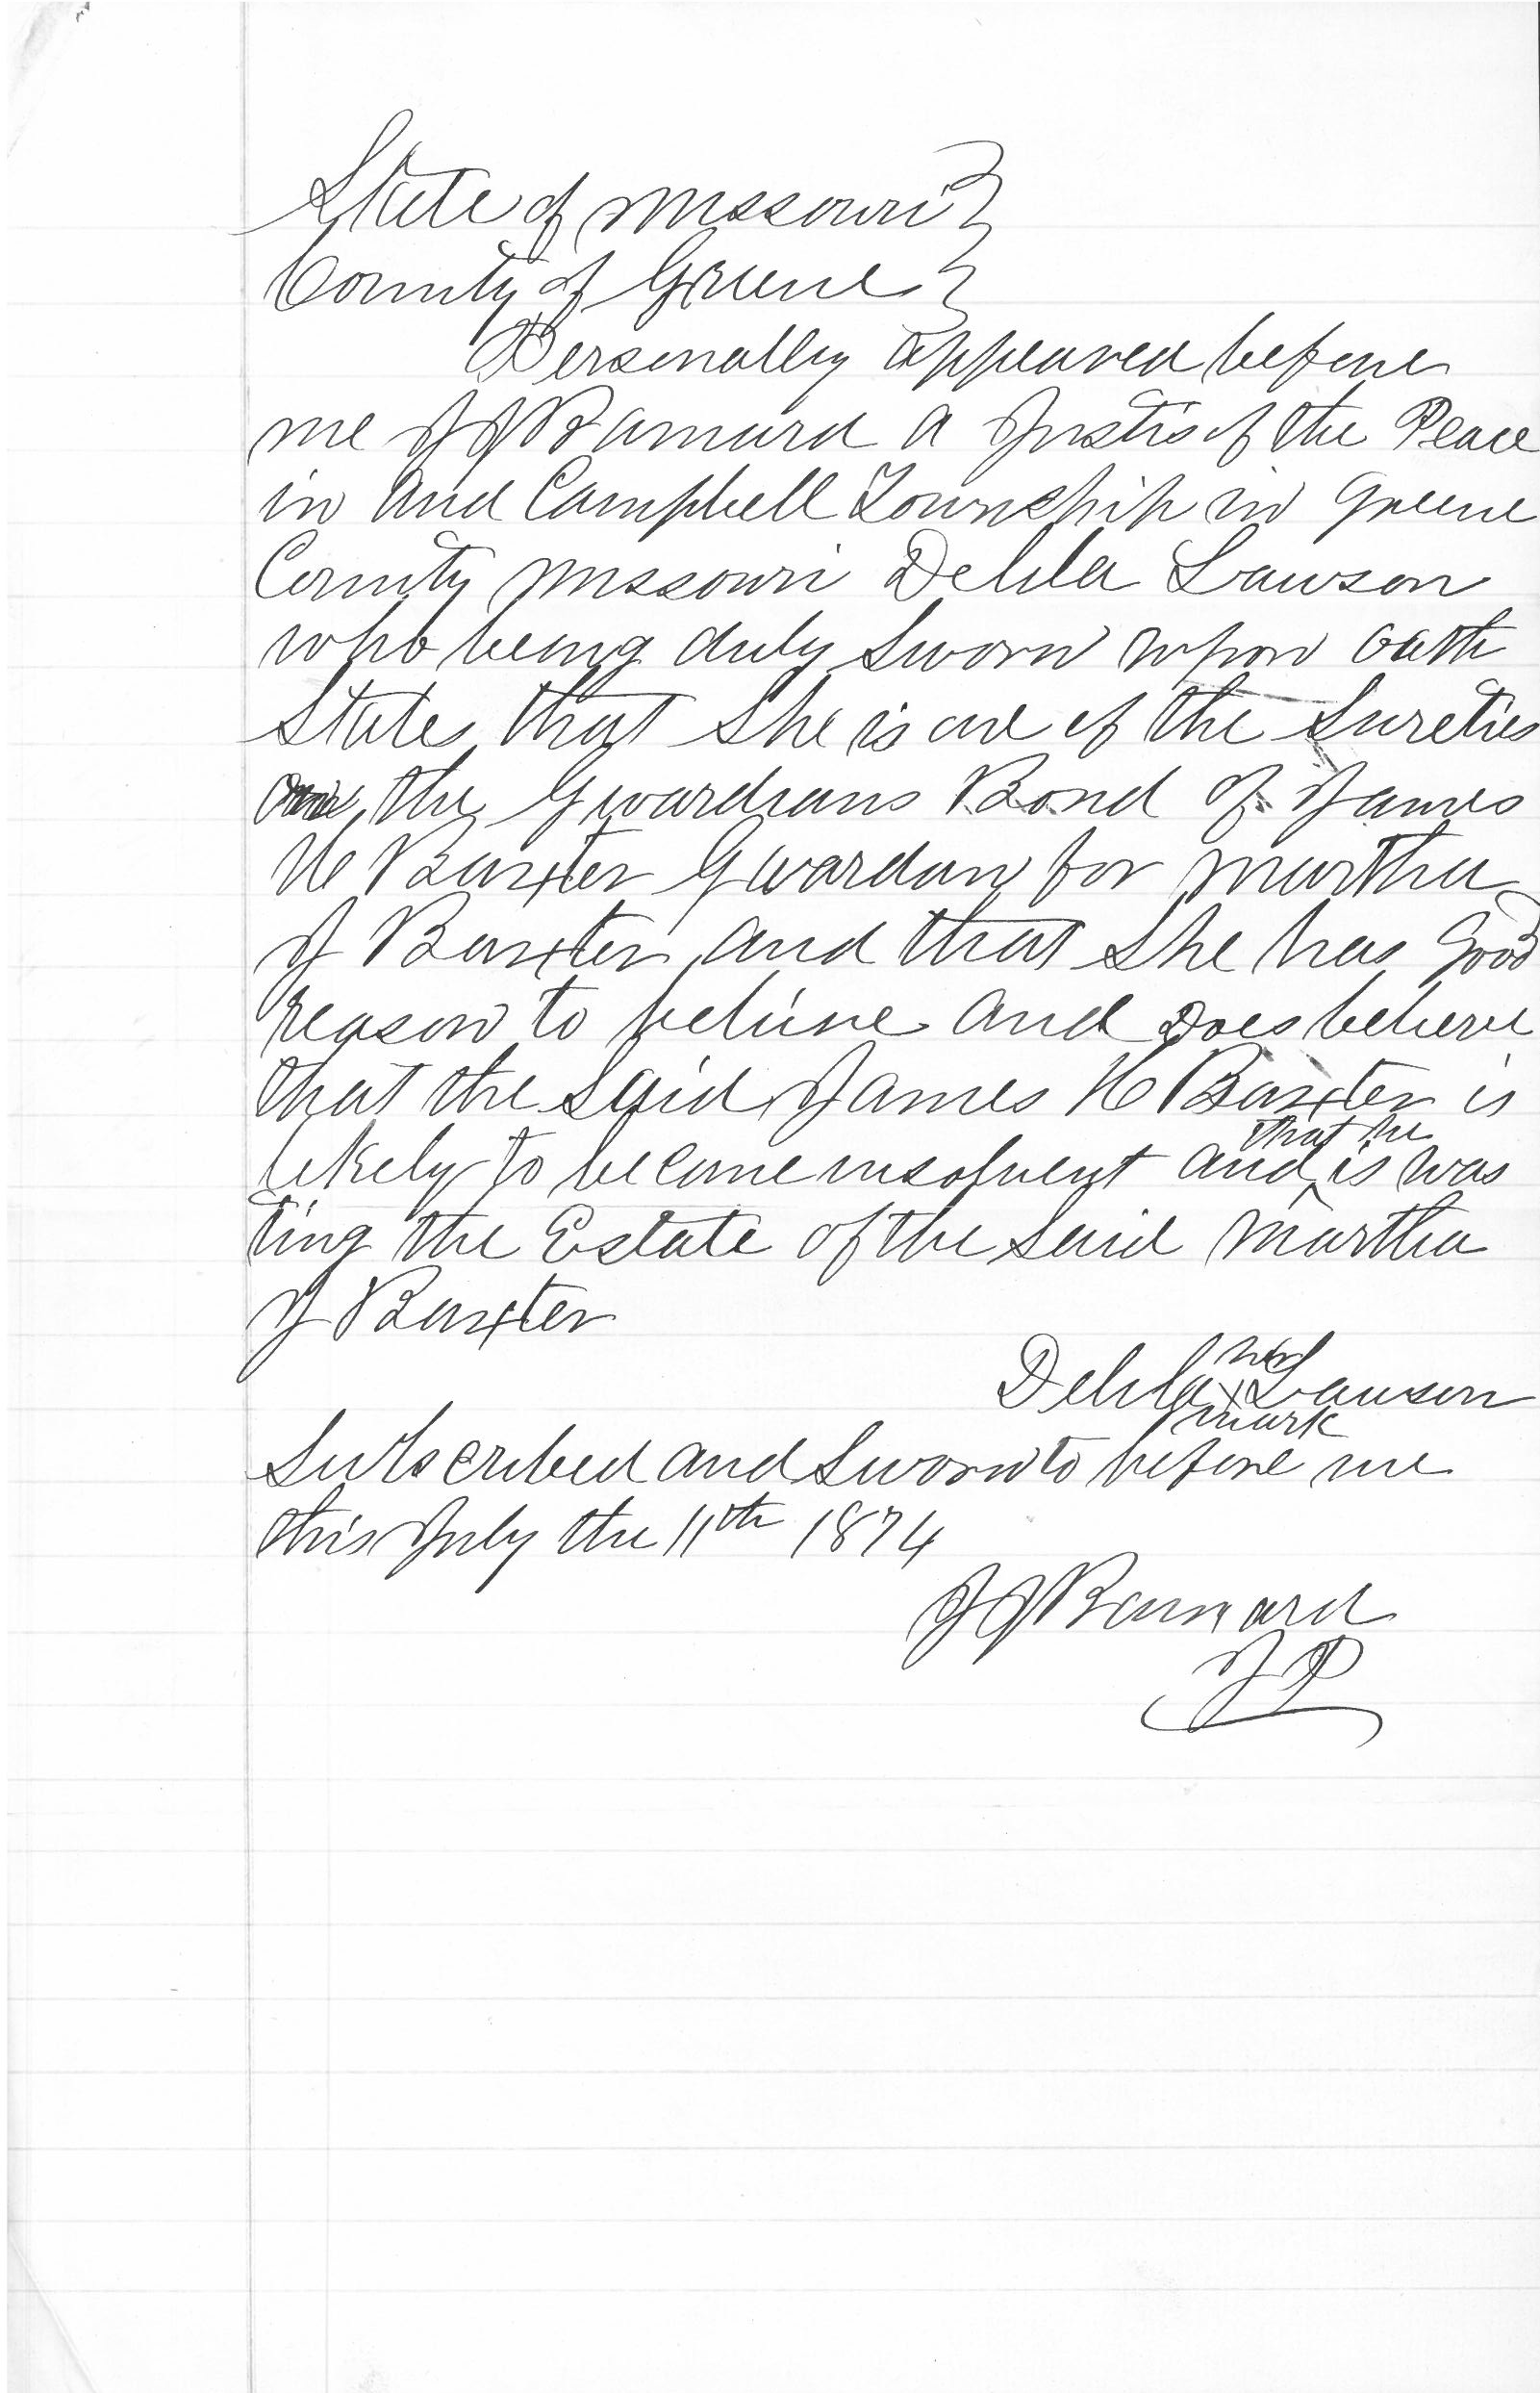 State of Missouri }
County of Greene }
Personally appeared before
me J J Barnard a Justis of the Peace
in and Campbell Township in Greene
County Missouri Delila Lawson
who being duly Sworn upon oath
States that She is one of the Sureties
on the Guardians Bond of James
H Baxter Guardan for Martha
J Baxter and that She has Good
reason to believe and Does believe
that the Said James H Baxter is
likely to become insolvent and that he is was
ting the Estate of the Said Martha
J Baxter
Delila her x mark Lawson
Subscribed and Sworn to before me
this July the 11th 1874
J J Barnard
J P